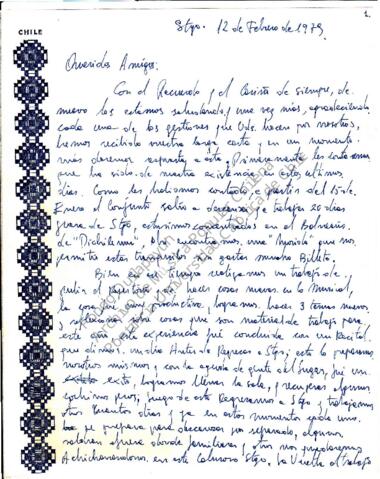 1.
CHILE
Stgo. 12 de Febrero de 1979
Queridos Amigos:
Con el Recuerdo y el Cariño de siempre, de
nuevo los estamos saludando, una vez más, agradeciendo
cada una de las gestiones que Uds. hacen por nosotros,
hemos recibido vuestra larga carta y en un momento
más daremos respuesta a esta. Primeramente les
que ha sido de nuestra existencia en estos últimos
días. Como les habíamos contado a partir del 15 de
Enero el Conjunto salió a y trabajar 20 días
fuera de Stgo, estuvimos en el Balneario
de "Pichilemu", ahí encontramos una "movida" que nos
permitía estar tranquilos sin gastar mucho Billete.
Bien en ese tiempo realizamos un trabajo de
pulir el Repertorio, de hacer cosas nuevas. En lo Musical,
la cosa fue muy productiva, logramos hacer 3 temas nuevos
y reflexionar sobre cosas que son material de trabajo para
este año, esta experiencia fué concluida con un Recital
que dimos, un día Antes de Regresar a Stgo; esto lo preparamos
nosotros mismos y con la ayuda de gente del lugar, fué un
exito, logramos llenar la sala, y recuperar algunos
pesos, luego de esto Regresamos a Stgo y trabajamos
otros cuantos días y ya en estos momentos cada uno
se prepara para descansar por separado, algunos
saldrán afuera donde familiares y otros nos quedaremos
Achicharrandonos en este Caluroso Stgo, la Vuelta al trabajo